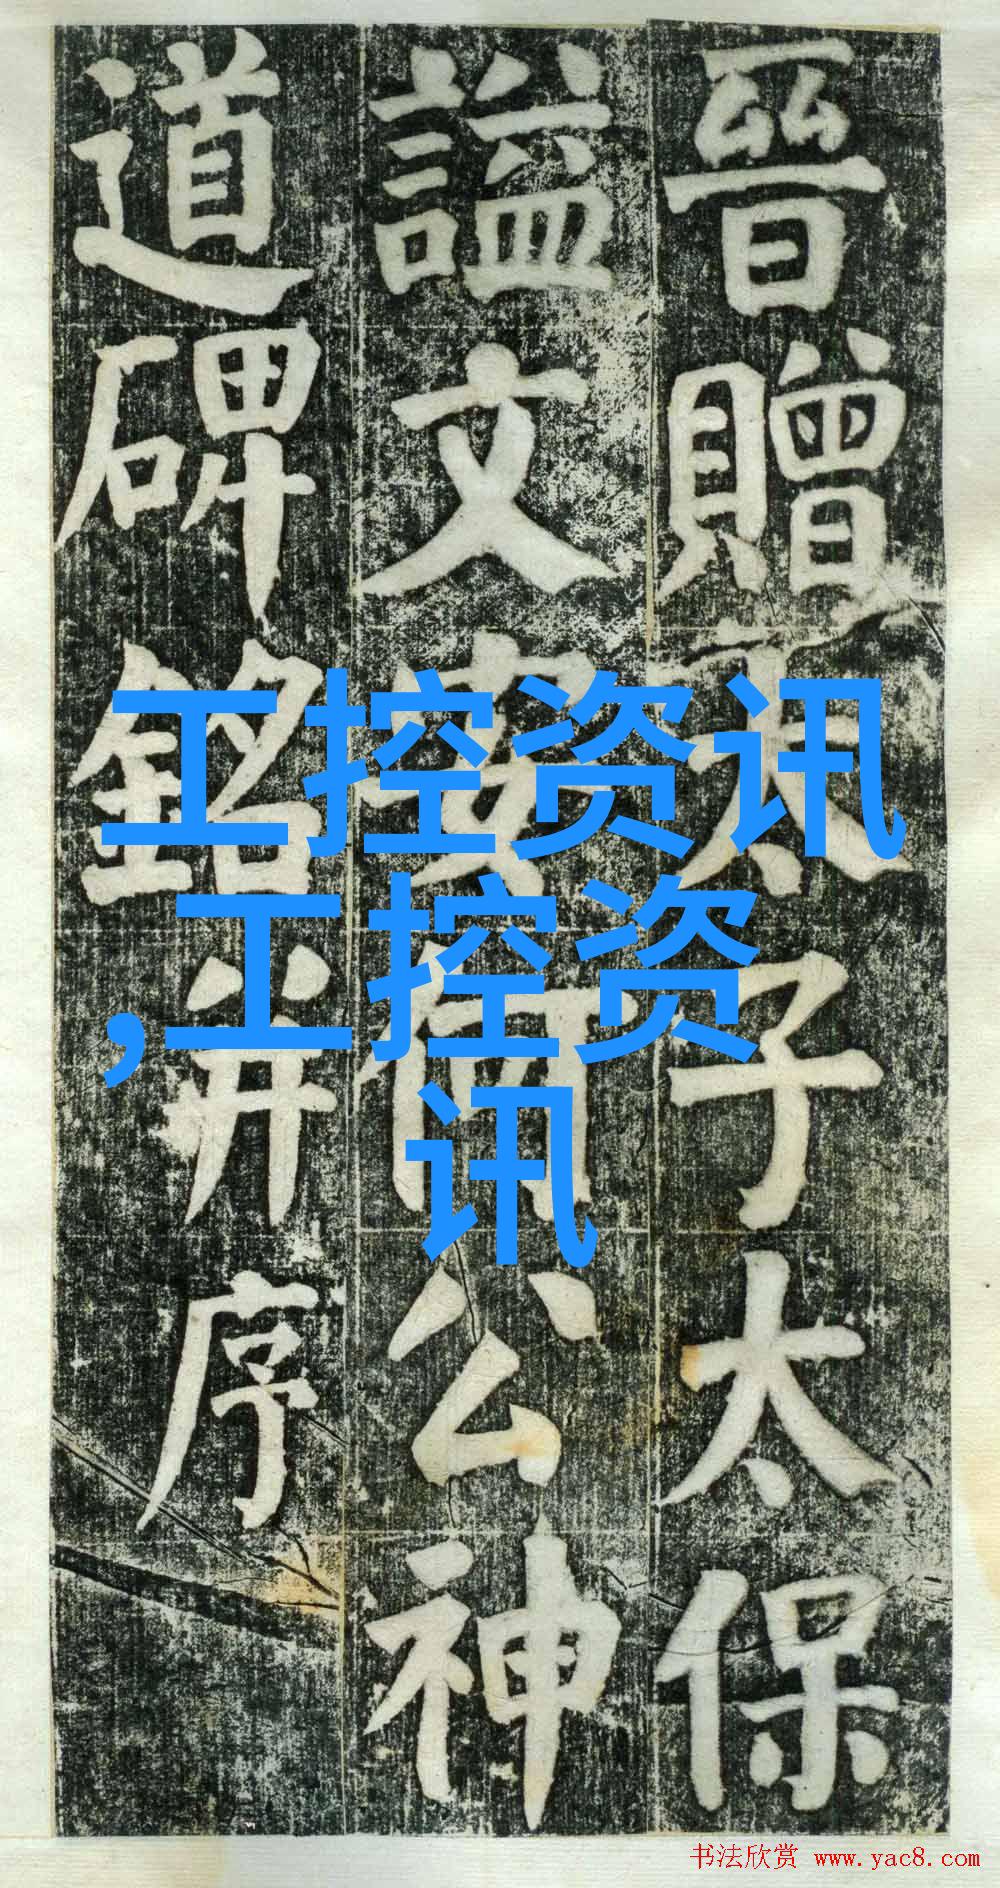 晉贈太子太保
謚文安何公神
道碑銘并序
工控资讯
,工控资
讯
书法欣赏 www.yac8.com